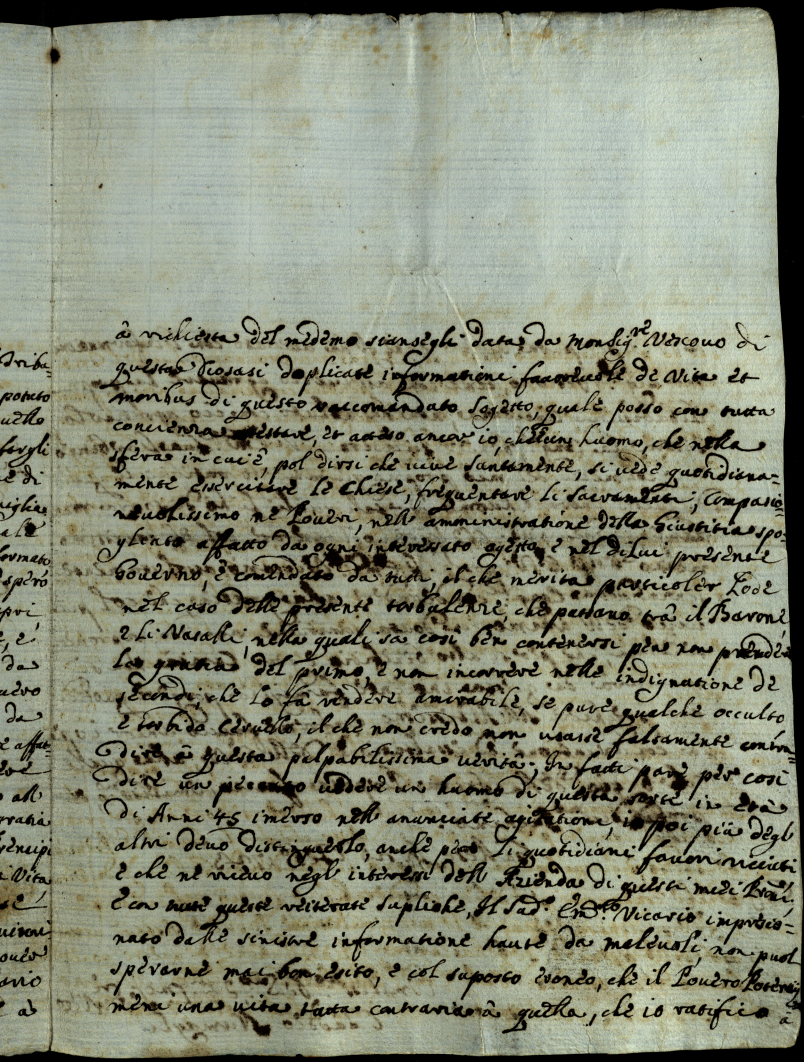 â richiesta del medemo siansegli data da Monsig.re Vescovo di
questa Diosasi duplicate informationi favorevole de Vita et
moribus di questo raccomandato Sogetto, quale posso con tutta
concienza attestare, et atteso ancor io, ch'è un huomo, che nella
sfera in cui è, pol dirsi che vive santamente, si vede quotidiana=
mente essercitare le Chiese, frequentare li Sacramenti, Compasio=
nevolissimo ne Poveri, nell amministratione della Giustitia spo=
gliento affatto da ogni interessato ogetto, e nel di lui presente
Governo, è comendato da tutti, il che merita particoler Lode
nel caso delle presente torbulenze, che passano trà il Barone,
e li Vasalli, nella quali sà così ben contenersi per non prendere
la gratia del primo, e non incorrere nelle indignatione de
secondi, che lo fà rendere amirabile, se pure qualche occulto
e torbido Cervello, il che non credo non vuasse falsamente contra=
dire â questa palpabilissima verità; In fatti pare per così
dire un peccato vedere un huomo di questa sorte in età
di Anni 45 imerso nell anunciate agitationi, io poi più degl
altri devo distinguerlo, anche per li quotidiani favori ricevuti
e che ne ricevo negl interessi dell Azienda di questi miei Pŕoni,
e con tutte queste reiterate supliche, Il Sad.o Em.o Vicario impresio=
nato dalle sinistre informatione haute da malevoli, non puol
sperarne mai bon esito, e col suposto eroneo, che il Povero
meni una vita tutta contraria â quella, che io ratifico â
Triba=
potuto
quello
fargli
e di
miglia
ale
formato
sperò
pri
e, e
da
da
e affat=
all
gratia
Prencipi
Vita
te
overo
ario
e à